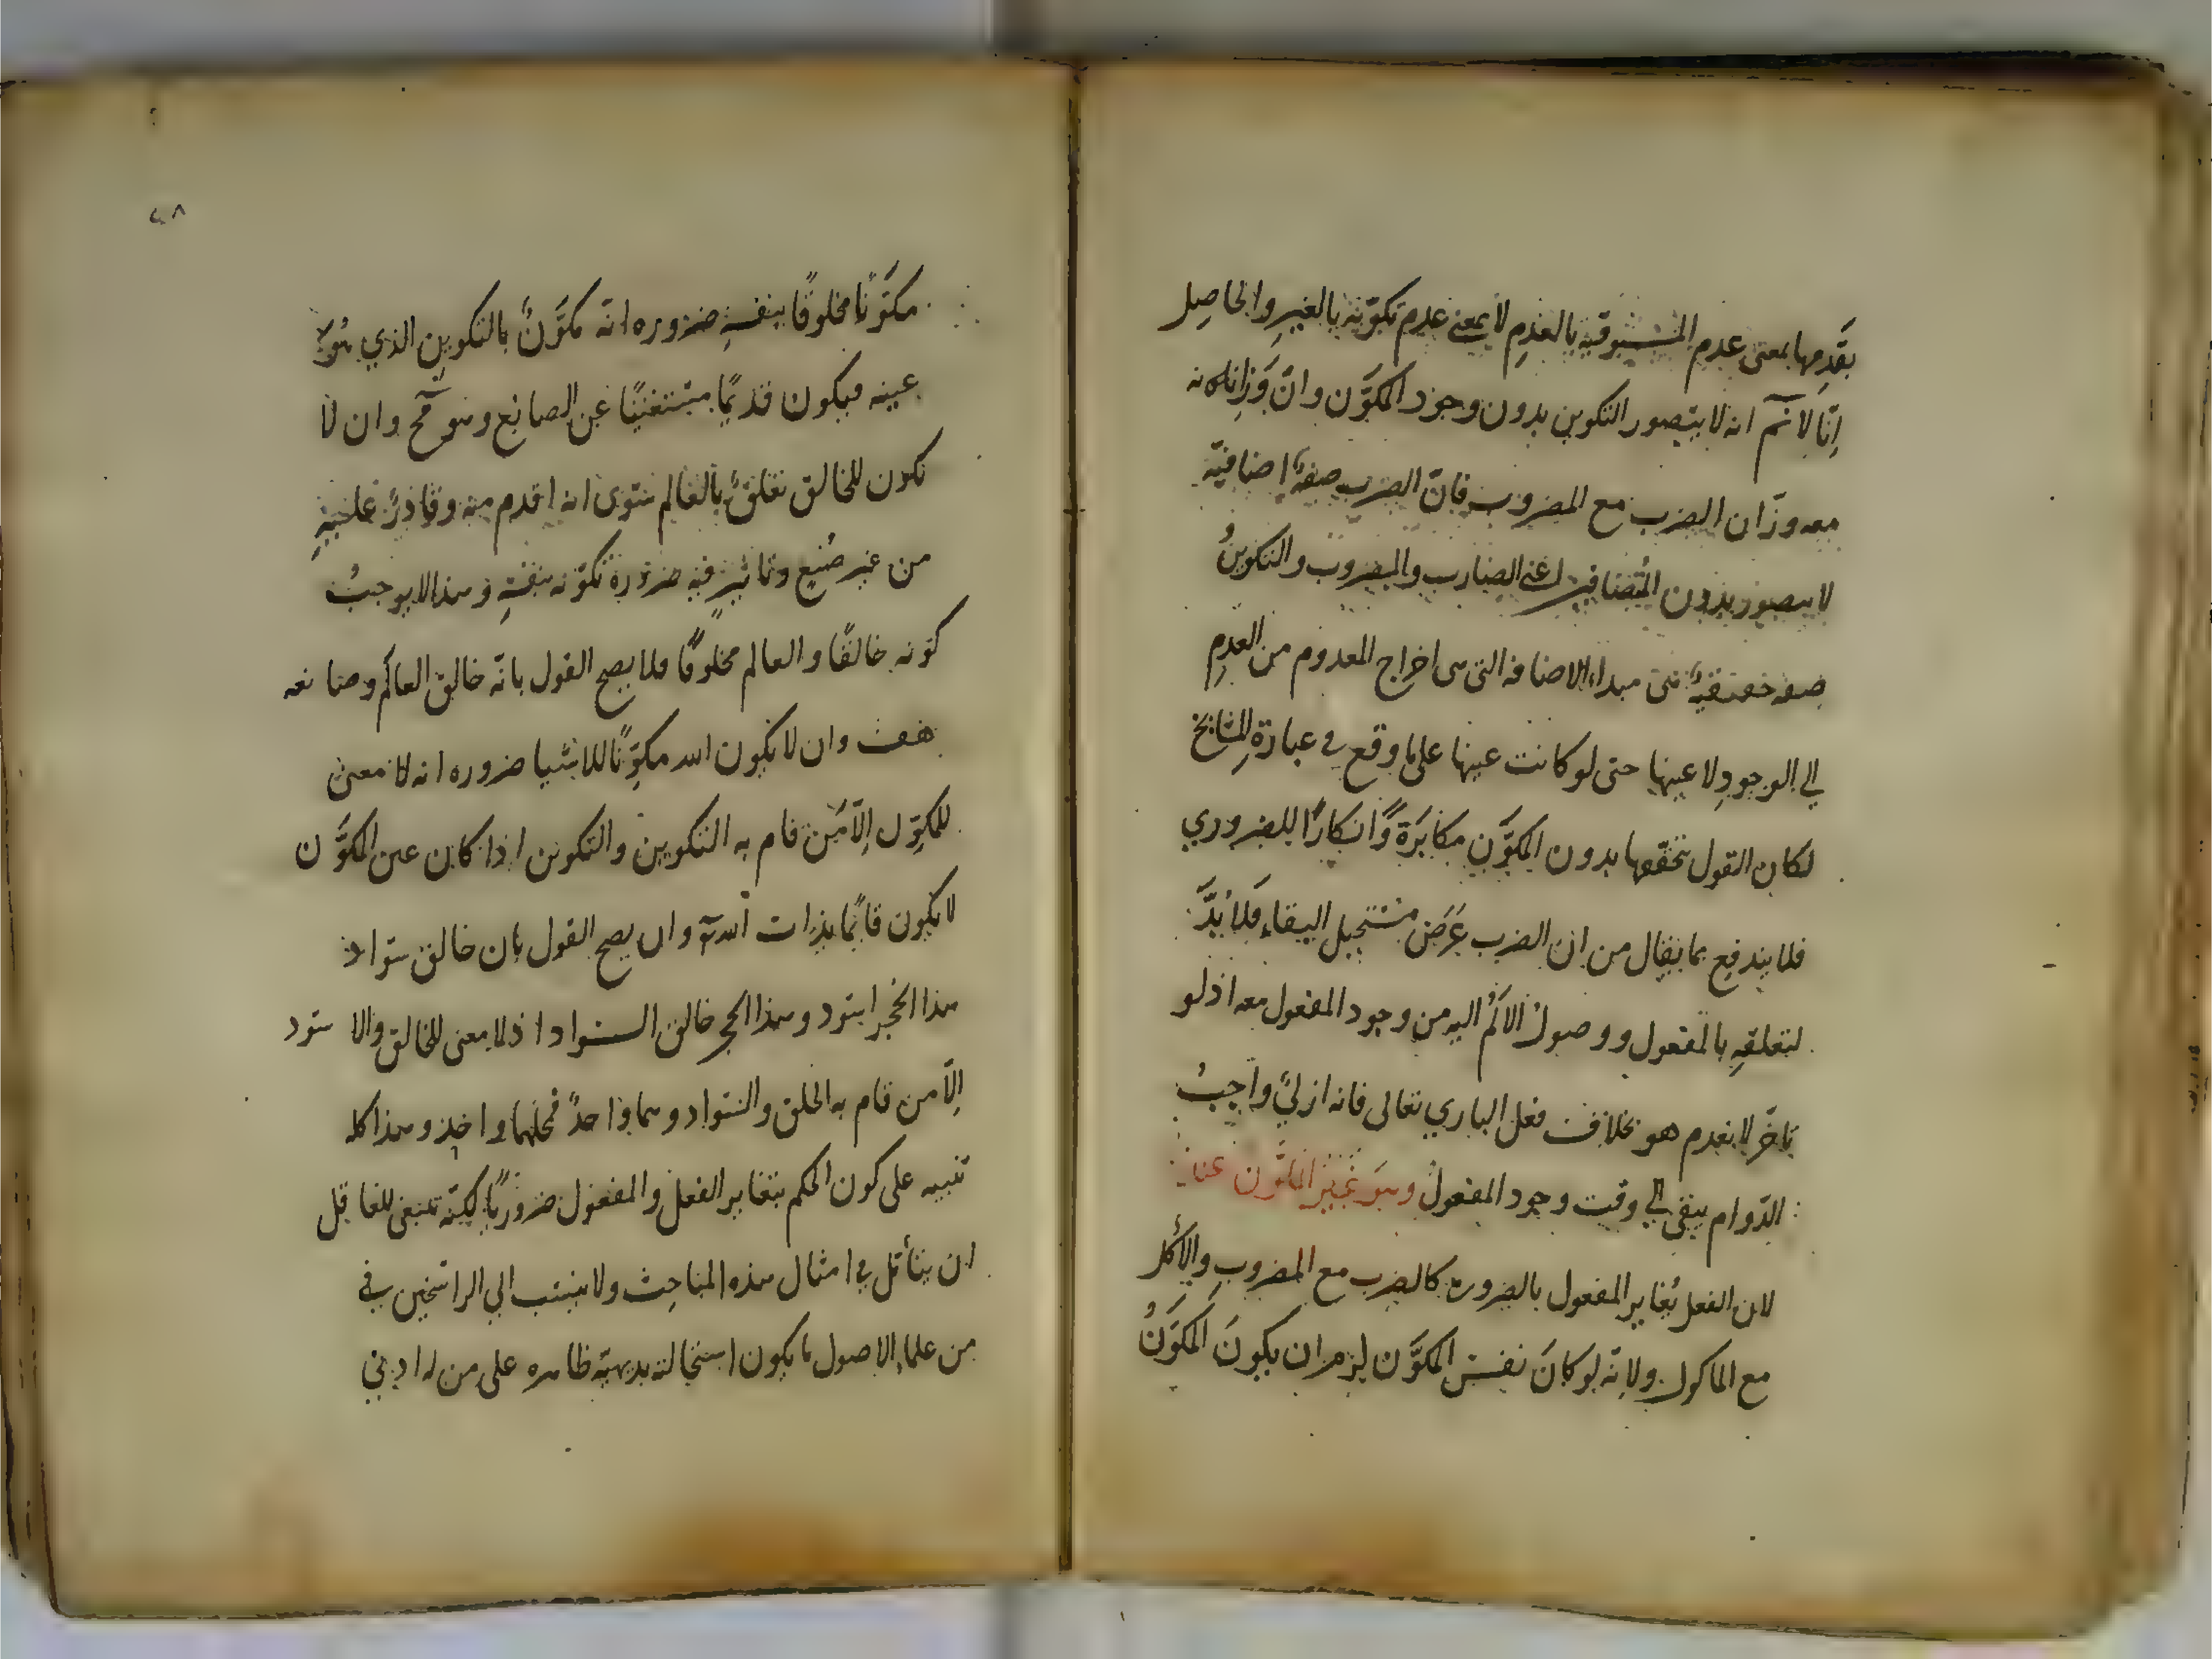 بقدمها بمعنى عدم المسبوقية بالعدم لا بمعنى عدم تكونه بالغير والحاصل
انّا لا نم انه لا يتصور التكوين بدون وجود المكوَّن وانّ وزانه
معه وزان الضرب مع المضروب فانّ الضرب صفة اضافية
لا يتصور بدون المتضايفين اعنى الضارب والمضروب والتكوين
صفة حقيقية هى مبداء الاضافة التى هى اخراج المعدوم من العدم
الى الوجود لا عينها حتى لو كانت عينها على ما وقع فى عبارة المشايخ
لكان القول بتحققها بدون المكوَّن مكابرة وانكارًا للضروري
فلا يندفع بما يقال من ان الضرب عرض مستحيل البقاء فلا بدّ
لتعلقه بالمفعول ووصول الالم اليه من وجود المفعول معه اذ لو
تاخّر لانعدم هو بخلاف فعل البارى تعالى فانه ازلىّ واجب
الدّوام يبقى الى وقت وجود المفعول وهو غير المكوّن عندنا
لان الفعل يُغاير المفعول بالضرورة كالضرب مع المضروب والأكل
مع الماكول ولانّه لو كانَ نفس المكوَّن لزم ان يكونَ المكوَّنُ
مكوَّنًا مخلوقًا بنفسه ضرورة انّه مكوَّنٌ بالتكوين الذي هو
عينه فيكون قديمًا مستغنيًا عن الصانع وهو مح وان لا
يكون للخالق تعلقٌ بالعالم سوى انه اقدم منه وقادرٌ عليه
من غير صُنع وتاثير فيه ضرورة تكوّنه بنفسه وهذا لا يوجبُ
كونه خالقًا والعالم مخلوقًا فلا يصح القول بانّه خالق العالم وصانعه
هف وان لا يكون الله مكوِّنًا للاشيا ضروره انه لا معنى
للمكوِّن الّا مَن قام به التكوين والتكوين اذا كان عين المكوَّن
لا يكون قائمًا بذات الله تع وان يصح القول بان خالق سواد
هذا الحجر اسود وهذا الحجر خالق السواد اذ لا معنى للخالق والاسود
الّا من قام به الخلق والسواد وهما واحدٌ فمحلهما واحد وهذا كله
تنبيه على كون الحكم بتغاير الفعل والمفعول ضروريًا لكنّه ينبغى للعاقل
ان يتأمّل فى امثال هذه المباحث ولا ينسب الى الراسخين فى
من علماء الاصول ما يكون استحالته بديهيّة ظاهره على من له ادنى